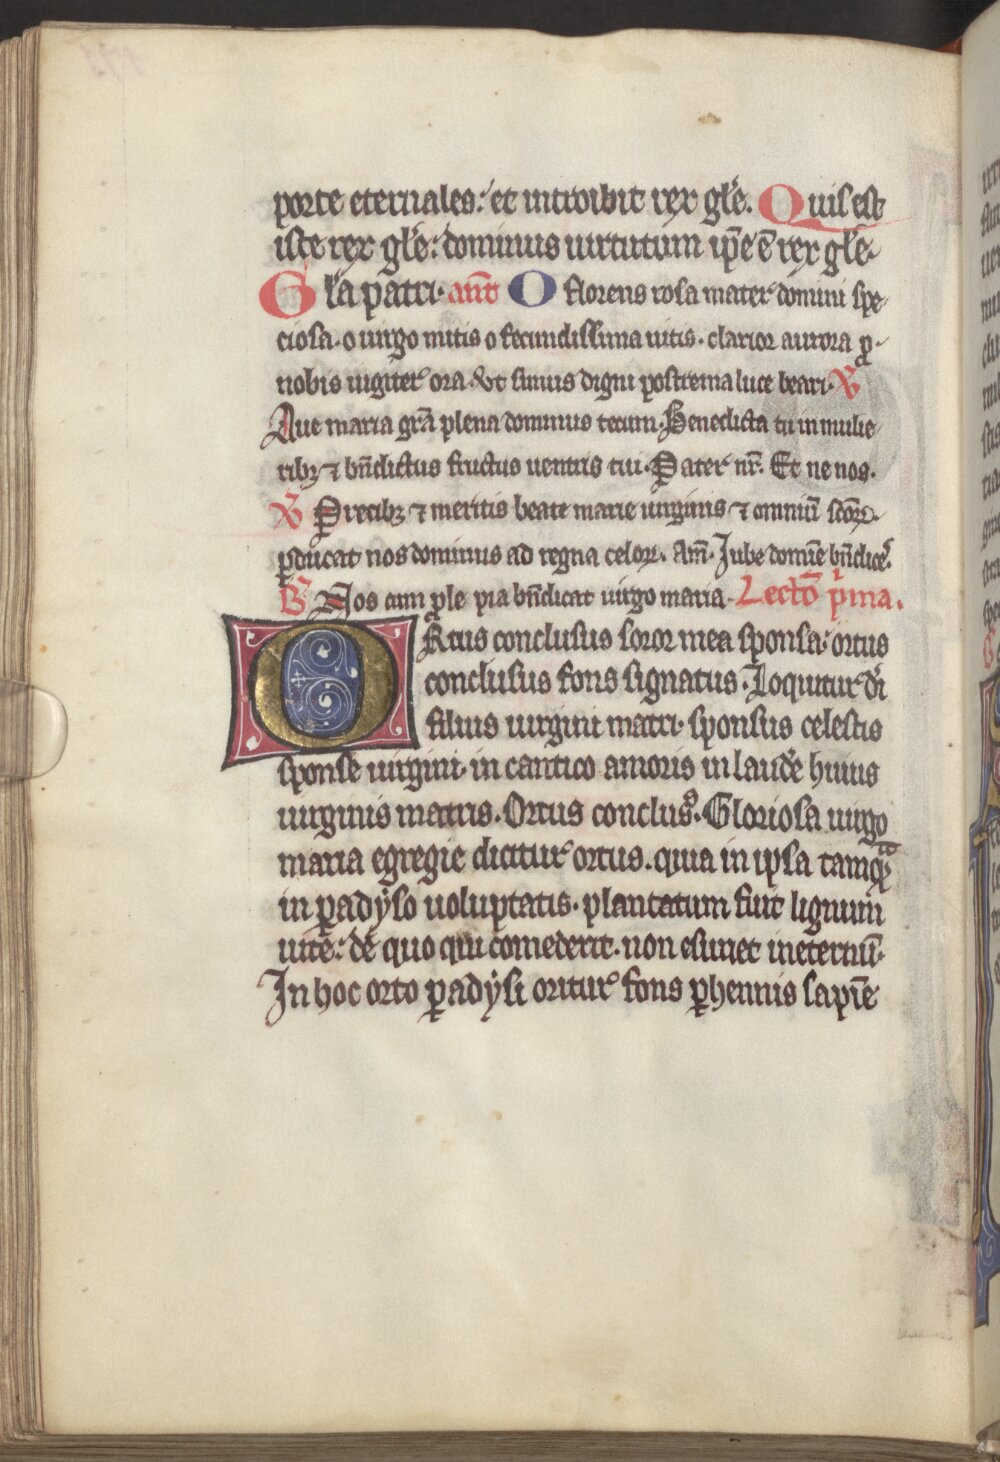 porte eternales: et introibit rex gl̄e. Quis est
iste rex gl̄e: dominus uirtutum ip̄e ē rex gl̄e.
Gl̄a patri. ant̄ O florens rosa mater domini spe-
ciosa. o uirgo mitis o fecundissima uitis. clarior aurora ꝓ
nobis iugiter ora. Vt simus digni postrema luce beari. ℣
Aue maria gr̄a plena dominus tecum. Benedicta tu in mulie-
ribꝫ ⁊ bn̄dictus fructus uentris tui. Pater nr̄. Et ne nos.
℣ Precibꝫ ⁊ meritis beate marie uirginis ⁊ omniū sc̄oꝝ.
ꝑducat nos dominus ad regna celoꝝ. Am̄. Jube domīe bn̄dicē.
B Nos cum ꝓle pia bn̄dicat uirgo maria. Lectō p̄ma.
ORtus conclusus soror mea sponsa: ortus
conclusus fons signatus. Loquitur dī
filius uirgini matri. sponsus celestis
sponse uirgini. in cantico amoris in laudē huius
uirginis matris. Ortus conclusꝰ. Gloriosa uirgo
maria egregie dicitur ortus. quia in ipsa tamqᷓ
in ꝑadyso uoluptatis. plantatum fuit lignum
uite: de quo qui comederit. non esuriet in eternū.
In hoc orto ꝑadysi oritur fons ꝑhennis sapīe